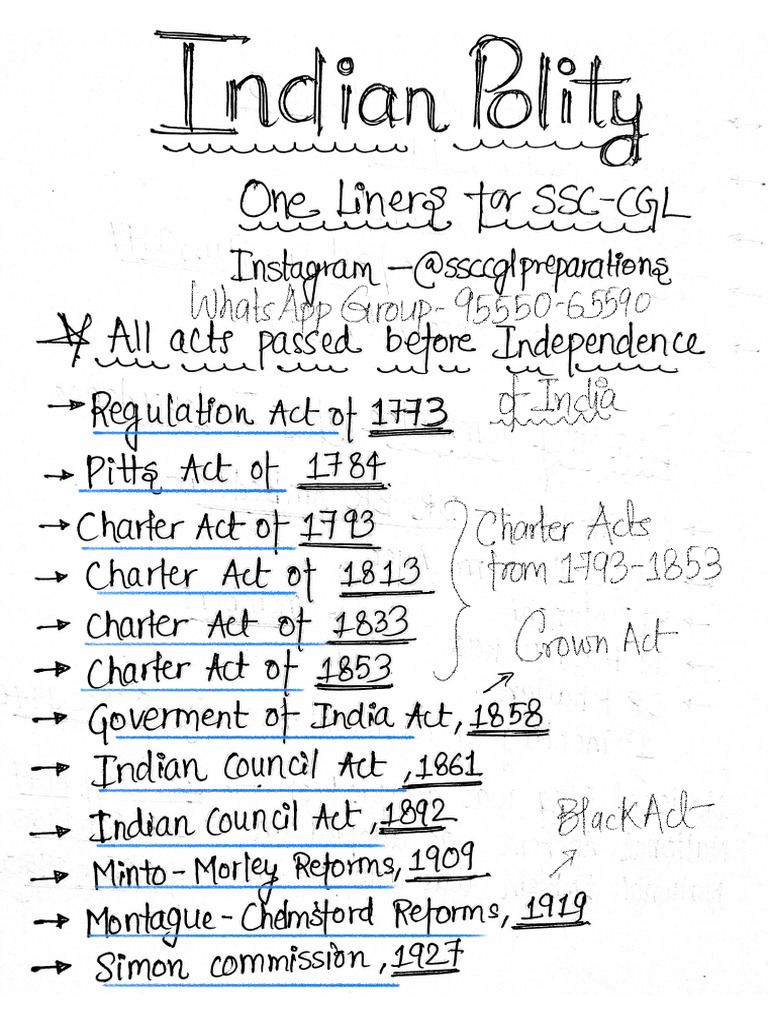 Indian Polity
One Liners for SSC-CGL
Instagram - @ssccglpreparations
WhatsApp Group- 95550-65590
All acts passed before Independence
of India
→ Regulation Act of 1773
→ Pitts Act of 1784
→ Charter Act of 1793
→ Charter Act of 1813
→ Charter Act of 1833
→ Charter Act of 1853
Charter Acts
from 1793-1853
Crown Act
→ Goverment of India Act, 1858
→ Indian Council Act, 1861
→ Indian Council Act, 1892
Black Act
→ Minto-Morley Reforms, 1909
→ Montague-Chelmsford Reforms, 1919
→ Simon commission, 1927